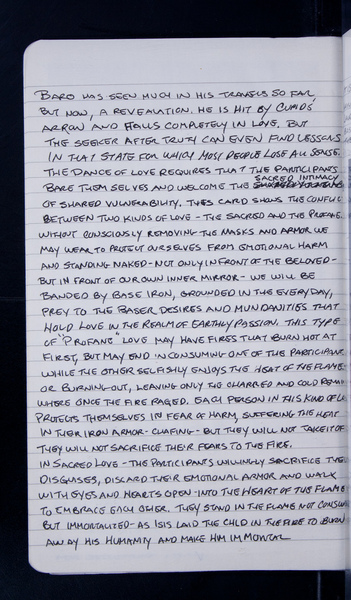 BARD HAS SEEN MUCH IN HIS TRAVELS SO FAR,
BUT NOW, A REVELATION. HE IS HIT BY CUPIDS'
ARROW AND FALLS COMPLETELY IN LOVE. BUT
THE SEEKER AFTER TRUTH CAN EVEN FIND LESSONS
IN THAT STATE FOR WHICH MOST PEOPLE LOSE ALL SENSE.
THE DANCE OF LOVE REQUIRES THAT THE PARTICIPANTS
BARE THEMSELVES AND WELCOME THE SACRED INTIMACY
OF SHARED VULNERABILITY. THIS CARD SHOWS THE CONFLIC
BETWEEN TWO KINDS OF LOVE - THE SACRED AND THE PROFANE.
WITHOUT CONSCIOUSLY REMOVING THE MASKS AND ARMOR WE
MAY WEAR TO PROTECT OURSELVES FROM EMOTIONAL HARM
AND STANDING NAKED - NOT ONLY IN FRONT OF THE BELOVED -
BUT IN FRONT OF OUR OWN INNER MIRROR - WE WILL BE
BANDED BY BASE IRON, GROUNDED IN THE EVERYDAY,
PREY TO THE BASER DESIRES AND MUNDANITIES THAT
HOLD LOVE IN THE REALM OF EARTHLY PASSION. THIS TYPE
OF "PROFANE" LOVE MAY HAVE FIRES THAT BURN HOT AT
FIRST, BUT MAY END IN CONSUMING ONE OF THE PARTICIPANT
WHILE THE OTHER SELFISHLY ENJOYS THE HEAT OF THE FLAME -
OR BURNING OUT, LEAVING ONLY THE CHARRED AND COLD REMAI
WHERE ONCE THE FIRE RAGED. EACH PERSON IN THIS KIND OF LO
PROTECTS THEMSELVES IN FEAR OF HARM, SUFFERING THE HEAT
IN THEIR IRON ARMOR - CHAFING - BUT THEY WILL NOT TAKE IT OF
THEY WILL NOT SACRIFICE THEIR FEARS TO THE FIRE.
IN SACRED LOVE - THE PARTICIPANTS WILLINGLY SACRIFICE THEI
DISGUISES, DISCARD THEIR EMOTIONAL ARMOR AND WALK
WITH EYES AND HEARTS OPEN - INTO THE HEART OF THE FLAME
TO EMBRACE EACH OTHER. THEY STAND IN THE FLAME NOT CONSUM
BUT IMMORTALIZED - AS ISIS LAID THE CHILD IN THE FIRE TO BURN
AWAY HIS HUMANITY AND MAKE HIM IMMORTAL